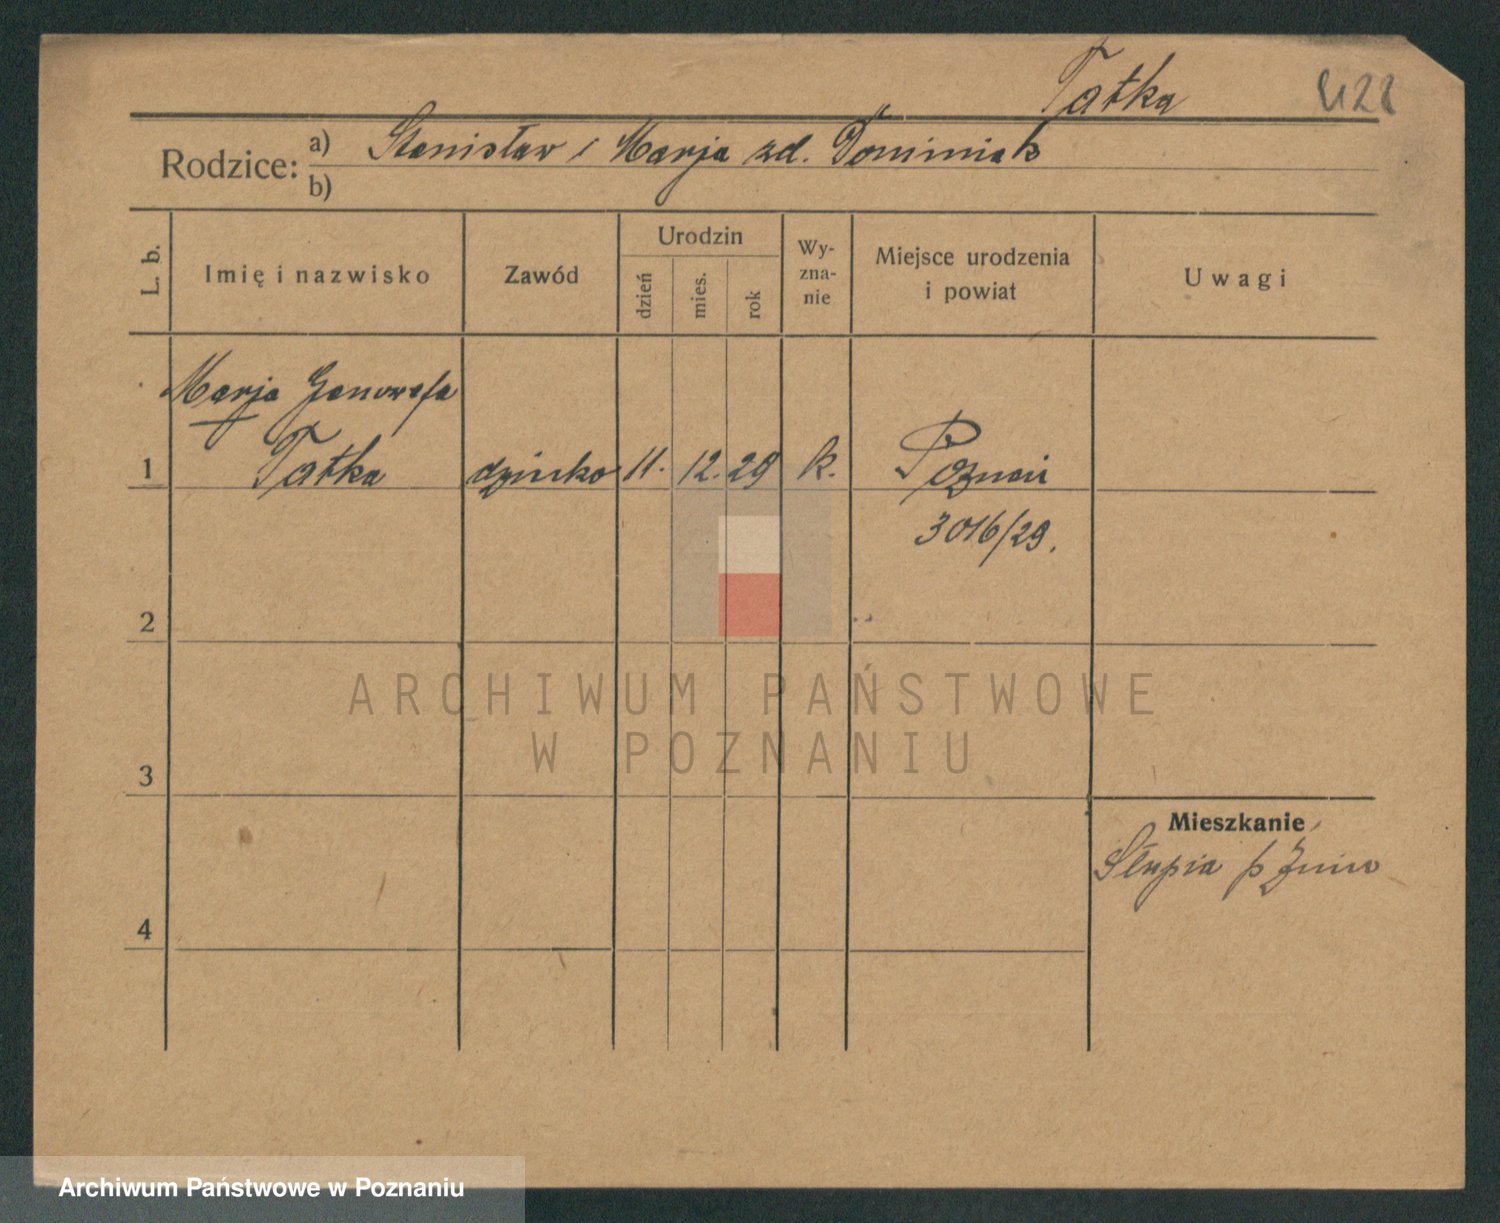 Tatka
Rodzice: a) Stanisław i Marja zd. Dominiak
b)
L. b.
Imię i nazwisko
Zawód
Urodzin
dzień
mies.
rok
Wy-
zna-
nie
Miejsce urodzenia
i powiat
Uwagi
Marja Genowefa
1 Tatka dziecko 11. 12. 29 k. Poznań
3016/29.
2
ARCHIWUM PAŃSTWOWE
W POZNANIU
3
Mieszkanie
Słupia p Żnin
4
Archiwum Państwowe w Poznaniu